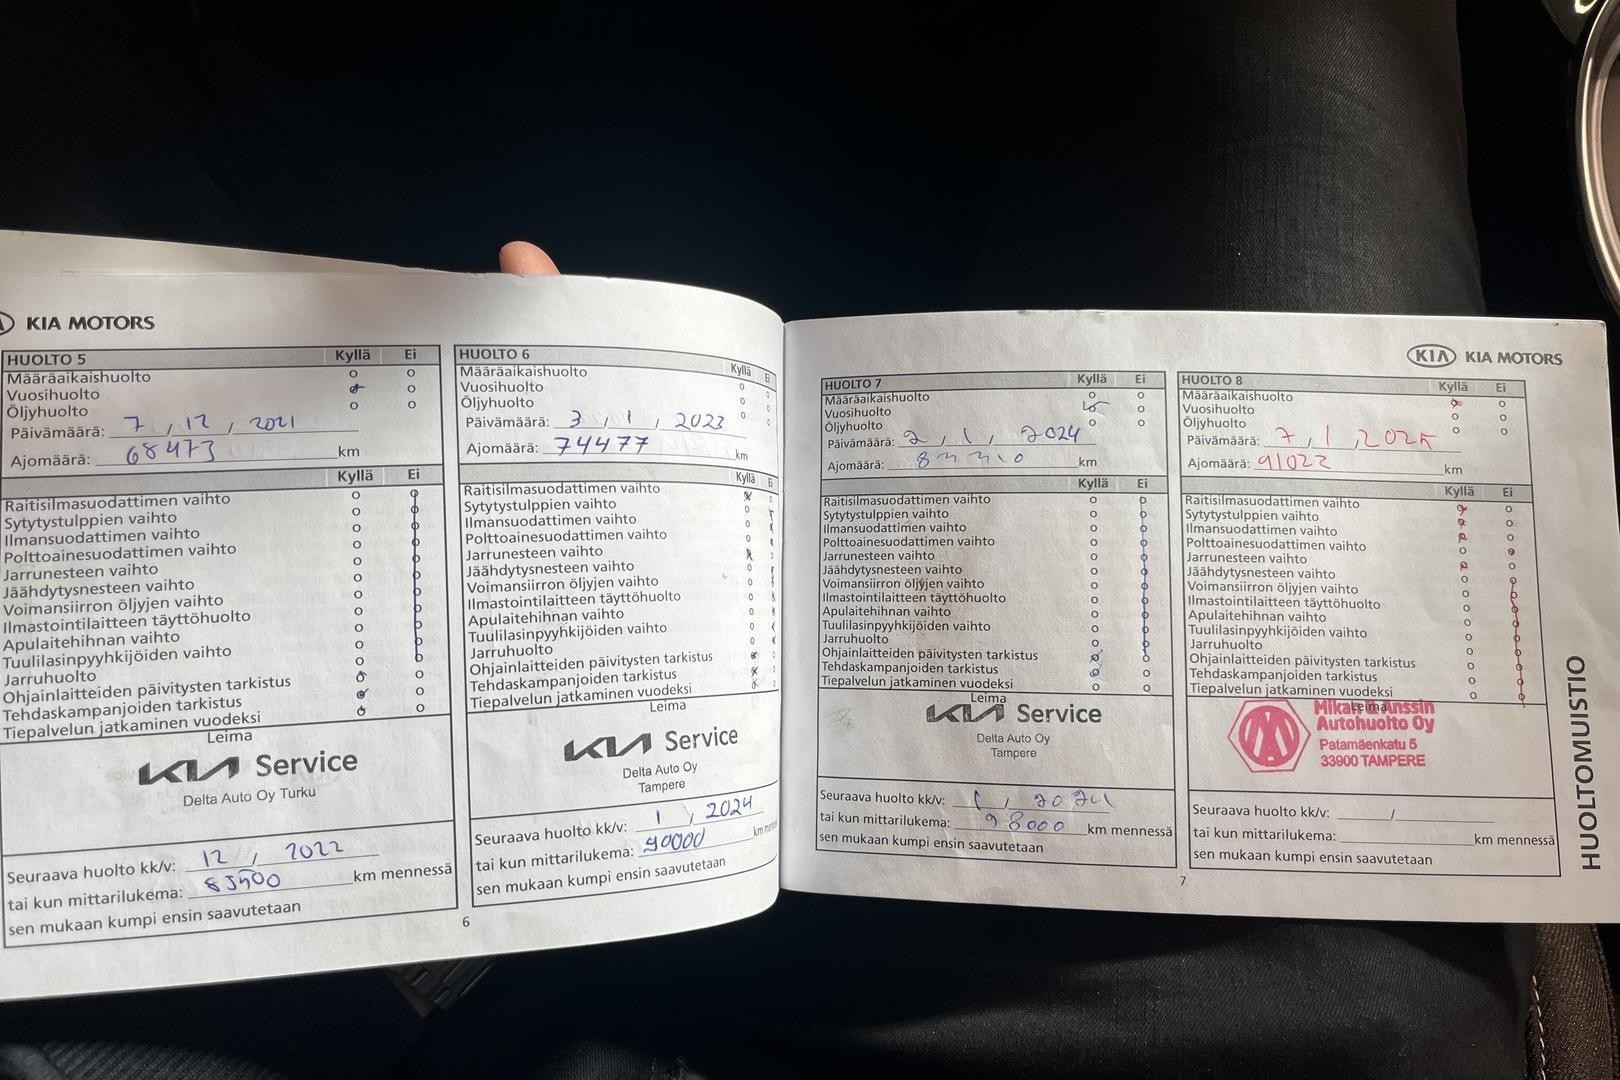 KIA MOTORS
HUOLTO 5 Kyllä Ei
Määräaikaishuolto
Vuosihuolto
Öljyhuolto
Päivämäärä: 7, 12, 2021
Ajomäärä: 68473 km
Kyllä Ei
Raitisilmasuodattimen vaihto
Sytytystulppien vaihto
Ilmansuodattimen vaihto
Polttoainesuodattimen vaihto
Jarrunesteen vaihto
Jäähdytysnesteen vaihto
Voimansiirron öljyjen vaihto
Ilmastointilaitteen täyttöhuolto
Apulaitehihnan vaihto
Tuulilasinpyyhkijöiden vaihto
Jarruhuolto
Ohjainlaitteiden päivitysten tarkistus
Tehdaskampanjoiden tarkistus
Tiepalvelun jatkaminen vuodeksi
Leima
KIA Service
Delta Auto Oy Turku
Seuraava huolto kk/v: 12, 2022
tai kun mittarilukema: km mennessä
sen mukaan kumpi ensin saavutetaan
HUOLTO 6 Kyllä Ei
Määräaikaishuolto
Vuosihuolto
Öljyhuolto
Päivämäärä: 3, 1, 2023
Ajomäärä: 74477 km
Kyllä Ei
Raitisilmasuodattimen vaihto
Sytytystulppien vaihto
Ilmansuodattimen vaihto
Polttoainesuodattimen vaihto
Jarrunesteen vaihto
Jäähdytysnesteen vaihto
Voimansiirron öljyjen vaihto
Ilmastointilaitteen täyttöhuolto
Apulaitehihnan vaihto
Tuulilasinpyyhkijöiden vaihto
Jarruhuolto
Ohjainlaitteiden päivitysten tarkistus
Tehdaskampanjoiden tarkistus
Tiepalvelun jatkaminen vuodeksi
Leima
KIA Service
Delta Auto Oy
Tampere
Seuraava huolto kk/v: 1, 2024
tai kun mittarilukema: 90000 km
sen mukaan kumpi ensin saavutetaan
6
KIA KIA MOTORS
HUOLTO 7 Kyllä Ei
Määräaikaishuolto
Vuosihuolto
Öljyhuolto
Päivämäärä: 2, 1, 2024
Ajomäärä: km
Kyllä Ei
Raitisilmasuodattimen vaihto
Sytytystulppien vaihto
Ilmansuodattimen vaihto
Polttoainesuodattimen vaihto
Jarrunesteen vaihto
Jäähdytysnesteen vaihto
Voimansiirron öljyjen vaihto
Ilmastointilaitteen täyttöhuolto
Apulaitehihnan vaihto
Tuulilasinpyyhkijöiden vaihto
Jarruhuolto
Ohjainlaitteiden päivitysten tarkistus
Tehdaskampanjoiden tarkistus
Tiepalvelun jatkaminen vuodeksi
Leima
KIA Service
Delta Auto Oy
Tampere
Seuraava huolto kk/v:
tai kun mittarilukema: 98000 km mennessä
sen mukaan kumpi ensin saavutetaan
HUOLTO 8 Kyllä Ei
Määräaikaishuolto
Vuosihuolto
Öljyhuolto
Päivämäärä: 7, 1, 2025
Ajomäärä: 91022 km
Kyllä Ei
Raitisilmasuodattimen vaihto
Sytytystulppien vaihto
Ilmansuodattimen vaihto
Polttoainesuodattimen vaihto
Jarrunesteen vaihto
Jäähdytysnesteen vaihto
Voimansiirron öljyjen vaihto
Ilmastointilaitteen täyttöhuolto
Apulaitehihnan vaihto
Tuulilasinpyyhkijöiden vaihto
Jarruhuolto
Ohjainlaitteiden päivitysten tarkistus
Tehdaskampanjoiden tarkistus
Tiepalvelun jatkaminen vuodeksi
Leima
Autohuolto Oy
Patamäenkatu 5
33900 TAMPERE
Seuraava huolto kk/v: /
tai kun mittarilukema: km mennessä
sen mukaan kumpi ensin saavutetaan
7
HUOLTOMUISTIO